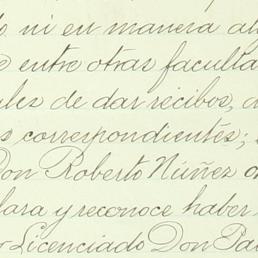 ni en manera al
entre otras faculta
les de dar recibos,
s correspondientes;
Don Roberto Núñez
lara y reconoce haber
Licenciado Don Pa